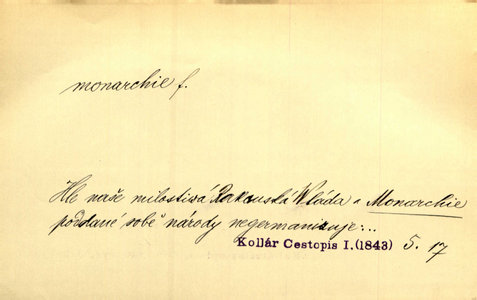 monarchie f.
Hle naše milostivá Rakouská Wláda a Monarchie
poddané sobě národy negermanisuje:..
Kollár Cestopis I.(1843) 5. 17